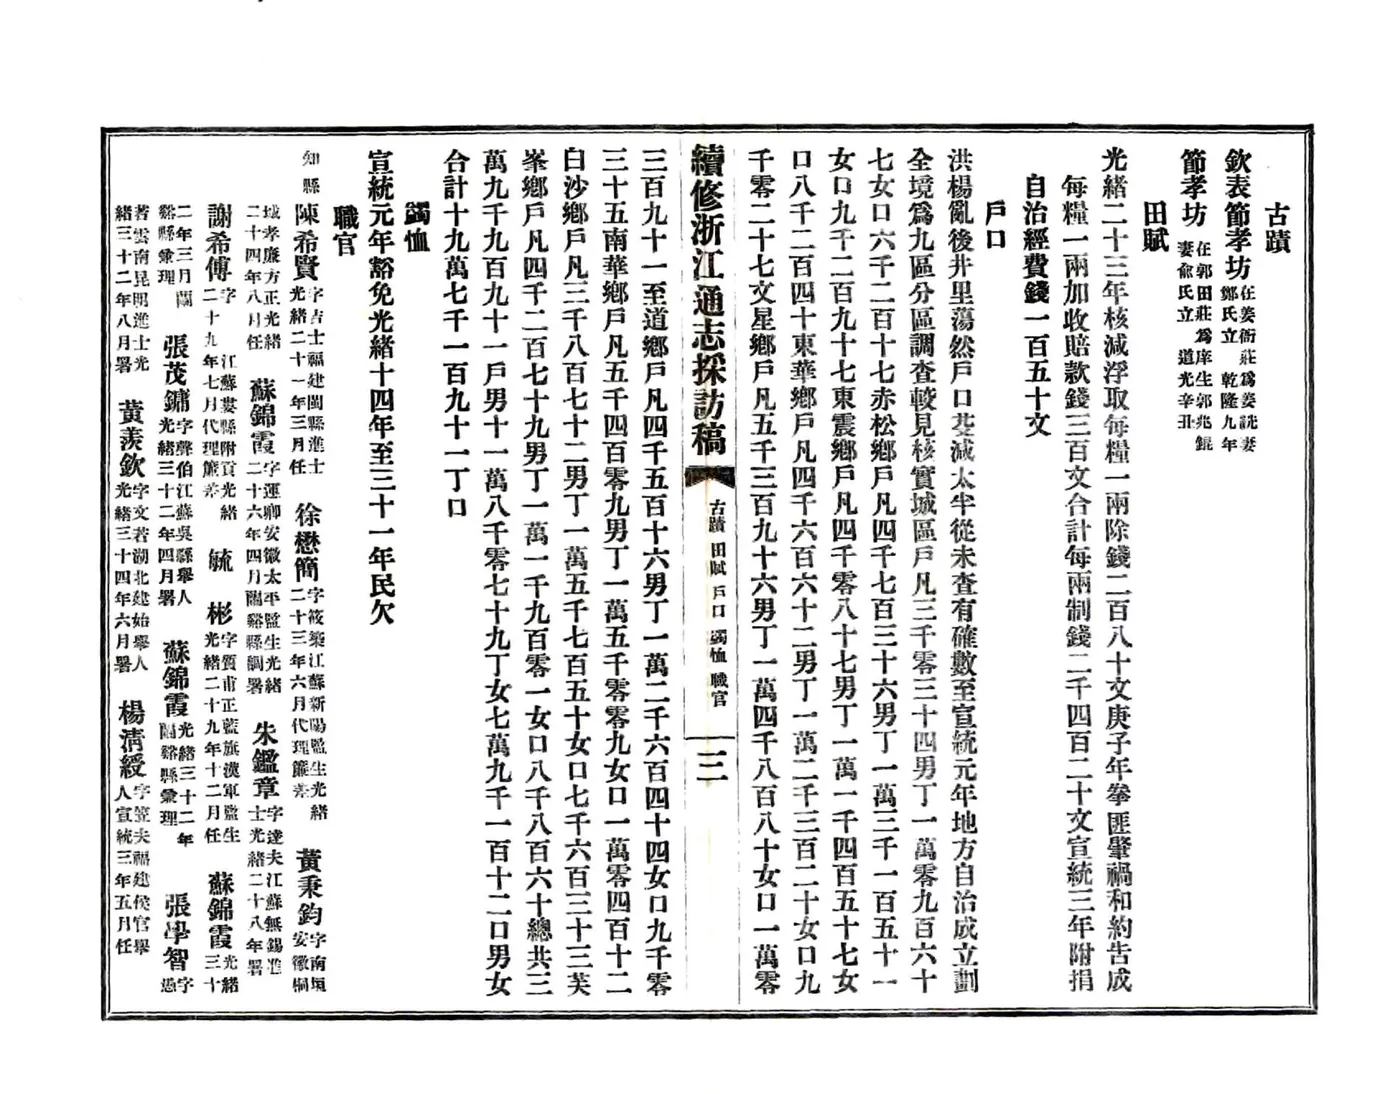 古蹟
欽表節孝坊在姜衙莊爲姜詵妻鄭氏立 乾隆九年
節孝坊在郭田莊爲庠生郭兆錕妻俞氏立 道光辛丑
田賦
光緒二十三年核減浮取每糧一兩除錢二百八十文庚子年拳匪肇禍和約吿成
每糧一兩加收賠款錢三百文合計每兩制錢二千四百二十文宣統三年附捐
自治經費錢一百五十文
戶口
洪楊亂後井里蕩然戶口耗減太半從未查有確數至宣統元年地方自治成立劃
全境爲九區分區調查較見核實城區戶凡三千零三十四男丁一萬零九百六十
七女口六千二百十七赤松鄉戶凡四千七百三十六男丁一萬三千一百五十一
女口九千二百九十七東震鄉戶凡四千零八十七男丁一萬一千四百五十七女
口八千二百四十東華鄉戶凡四千六百六十二男丁一萬二千三百二十女口九
千零二十七文星鄉戶凡五千三百九十六男丁一萬四千八百八十女口一萬零
續修浙江通志採訪稿 古蹟 田賦 戶口 蠲恤 職官 三
三百九十一至道鄉戶凡四千五百十六男丁一萬二千六百四十四女口九千零
三十五南華鄉戶凡五千四百零九男丁一萬五千零零九女口一萬零四百十二
白沙鄉戶凡三千八百七十二男丁一萬五千七百五十女口七千六百三十三芙
峯鄉戶凡四千二百七十九男丁一萬一千九百零一女口八千八百六十總共三
萬九千九百九十一戶男十一萬八千零七十九丁女七萬九千一百十二口男女
合計十九萬七千一百九十一丁口
蠲恤
宣統元年豁免光緒十四年至三十一年民欠
職官
知縣陳希賢字吉士福建閩縣進士光緒二十一年三月任 徐懋簡字筱築江蘇新陽監生光緒二十三年六月代理簾差 黃秉鈞字南垣安徽桐
城孝廉方正光緒二十四年八月任 蘇錦霞字運卿安徽太平監生光緒二十六年四月蘭谿縣調署 朱鑑章字達夫江蘇無錫進士光緒二十八年署
謝希傅字 江蘇婁縣附貢光緒二十九年七月代理簾差 毓彬字質甫正藍旗漢軍監生光緒二十九年十二月任 蘇錦霞光緒三十
二年三月蘭谿縣彙理 張茂鏞字聲伯江蘇吳縣舉人光緒三十二年四月署 蘇錦霞光緒三十二年蘭谿縣彙理 張學智字愚
若雲南昆明進士光緒三十二年八月署 黃羨欽字文若湖北建始舉人光緒三十四年六月署 楊淸綬字笠夫福建侯官舉人宣統三年五月任